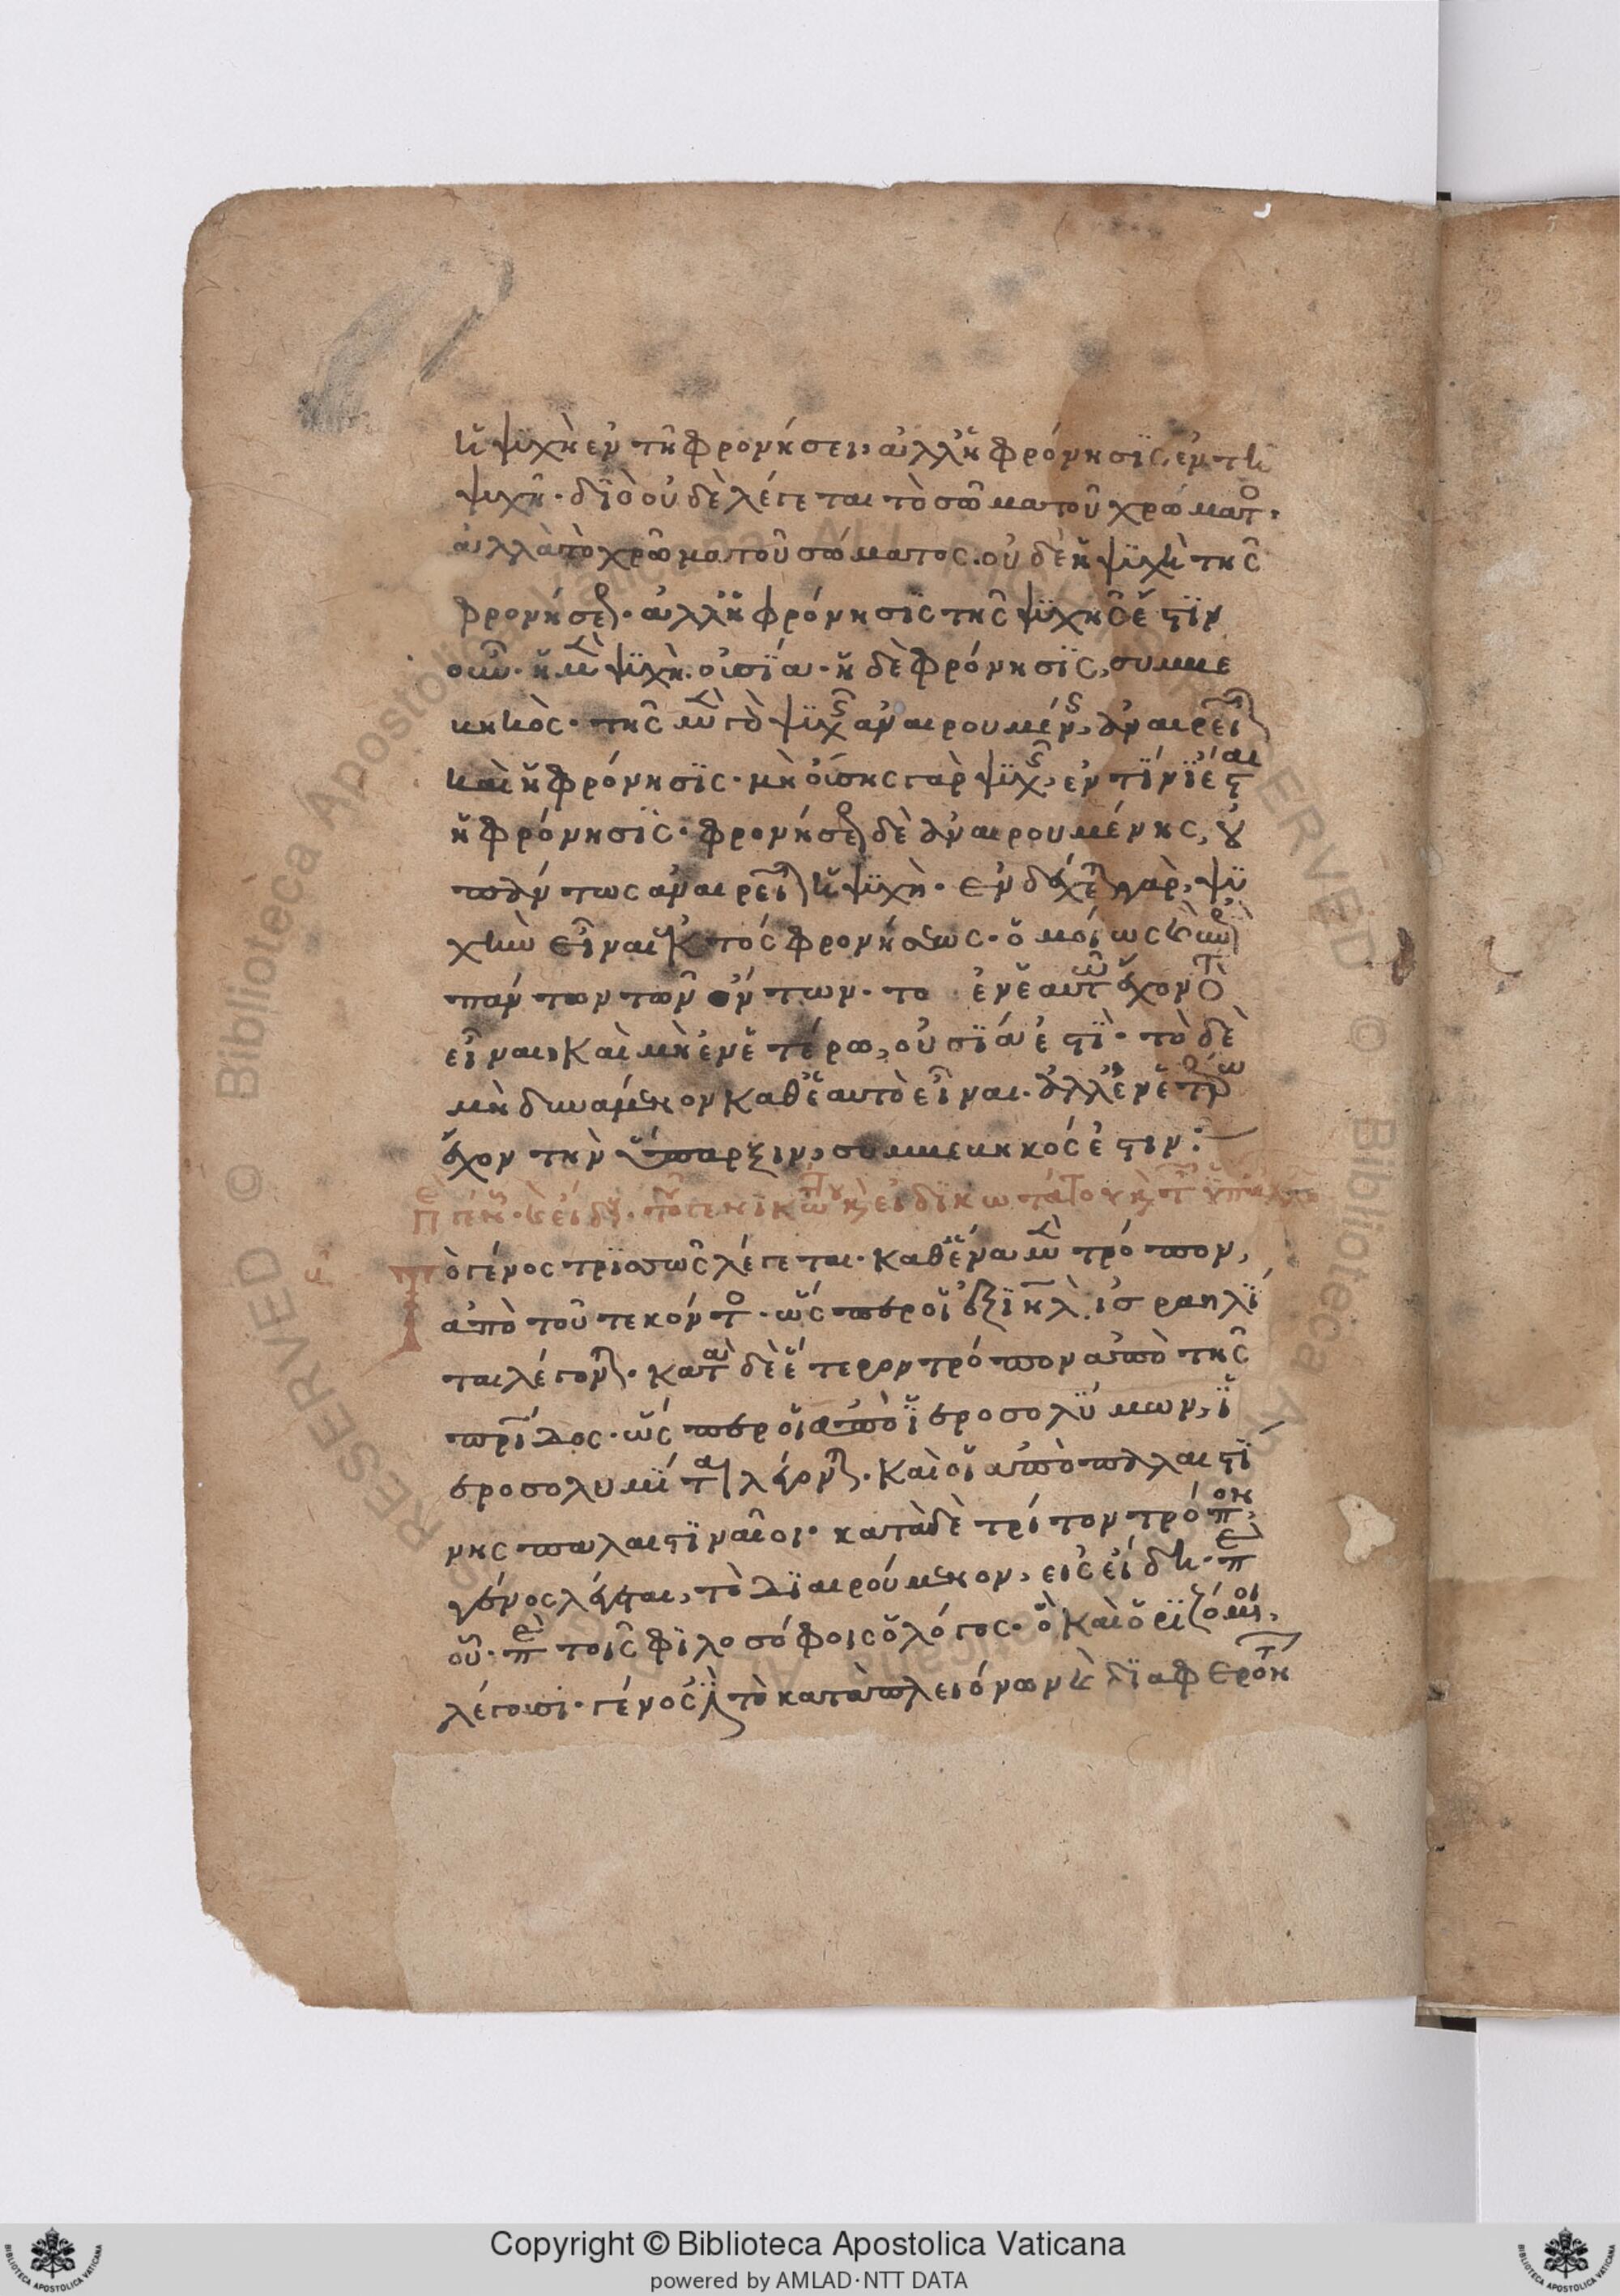 ἡ ψϋχὴ ἐν τῆ φρονήσει, ἀλλ' ἡ φρόνησϊς, ἐν τῆ
ψυχῆ· δϊὸ οὐδὲ λέγεται τὸ σῶμα τοῦ χρώματος·
ἀλλὰ τὸ χρῶμα τοῦ σώματος. οὐδὲ ἡ ψϋχὴ τῆς
φρονήσεως· ἀλλ' ἡ φρόνησϊς τῆς ψϋχῆς ἔστϊν
οὖν· ἡ μὲν ψϋχὴ οὐσϊα· ἡ δὲ φρόνησϊς, συμβε
βηκὸς· τῆς μὲν γὰρ ψϋχῆς ἀναιρουμένης, ἀναιρεῖται
καὶ ἡ φρόνησϊς· μὴ οὔσης γὰρ ψϋχῆς, ἐν τίνϊ ἔσται
ἡ φρόνησϊς· φρονήσεως δὲ ἀναιρουμένης, οὐ
πάντως ἀναιρεῖται ἡ ψϋχὴ· ἐνδέχεται γὰρ, ψϋ
χὴν εἶναι ἐκτός φρονήσεως· ὁμοίως καὶ ἐπὶ
πάντων τῶν ὄντων· το ἐν ἑαυτῶ ἔχον τὸ
εἶναι, καὶ μὴ ἐν ἑτέρω, οὐσϊα ἐστϊ· τὸ δὲ
μὴ δυνάμενον καθ' ἑαυτὸ εἶναι· ἀλλ' ἐν ἑτέρω
ἔχον τὴν ὕπαρξιν, συμβεβηκός ἐστιν:
Τὸ γένος τρϊσσῶς λέγεται· καθ' ἕνα μὲν τρόπον,
ἀπὸ τοῦ τεκόντος· ὡς περ οἱ ἐξ ϊηλ ἰσραηλϊ
ται λέγονται· κατὰ δὲ ἕτερον τρόπον ἀπὸ τῆς
πρίδος· ὡς περ οἱ ἀπὸ ϊεροσολύμων, ϊ
εροσολυμϊται λέγονται· καὶ οἱ ἀπὸ παλαιστϊ
νης παλαιστϊναῖοι· κατὰ δὲ τρίτον τρόπον,
γένος λέγεται, τὸ δϊαιρούμενον, εἰς εἴδη· περὶ
οὗ· παρὰ τοῖς φϊλοσόφοις ὁ λόγος· ὃ καὶ ὁρϊζόμενοι,
λέγουσι· γένος ἐστὶ τὸ κατὰ πλειόνων καὶ δϊαφερόντων